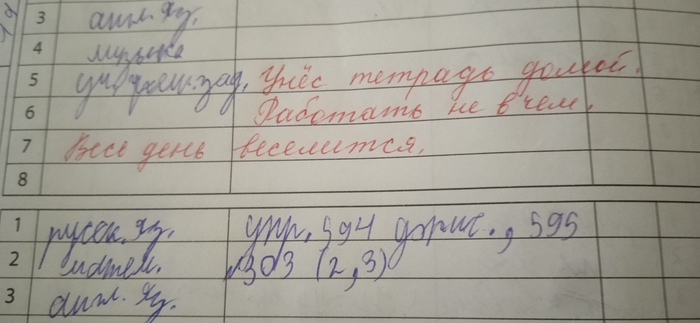 3 англ. яз.
4 музыка
5 Унёс тетрадь домой.
6 Работать не в чем.
7 Весь день веселится.
8
1 русск. яз. упр. 594 устно, 595
2 матем. №303 (2,3)
3 англ. яз.